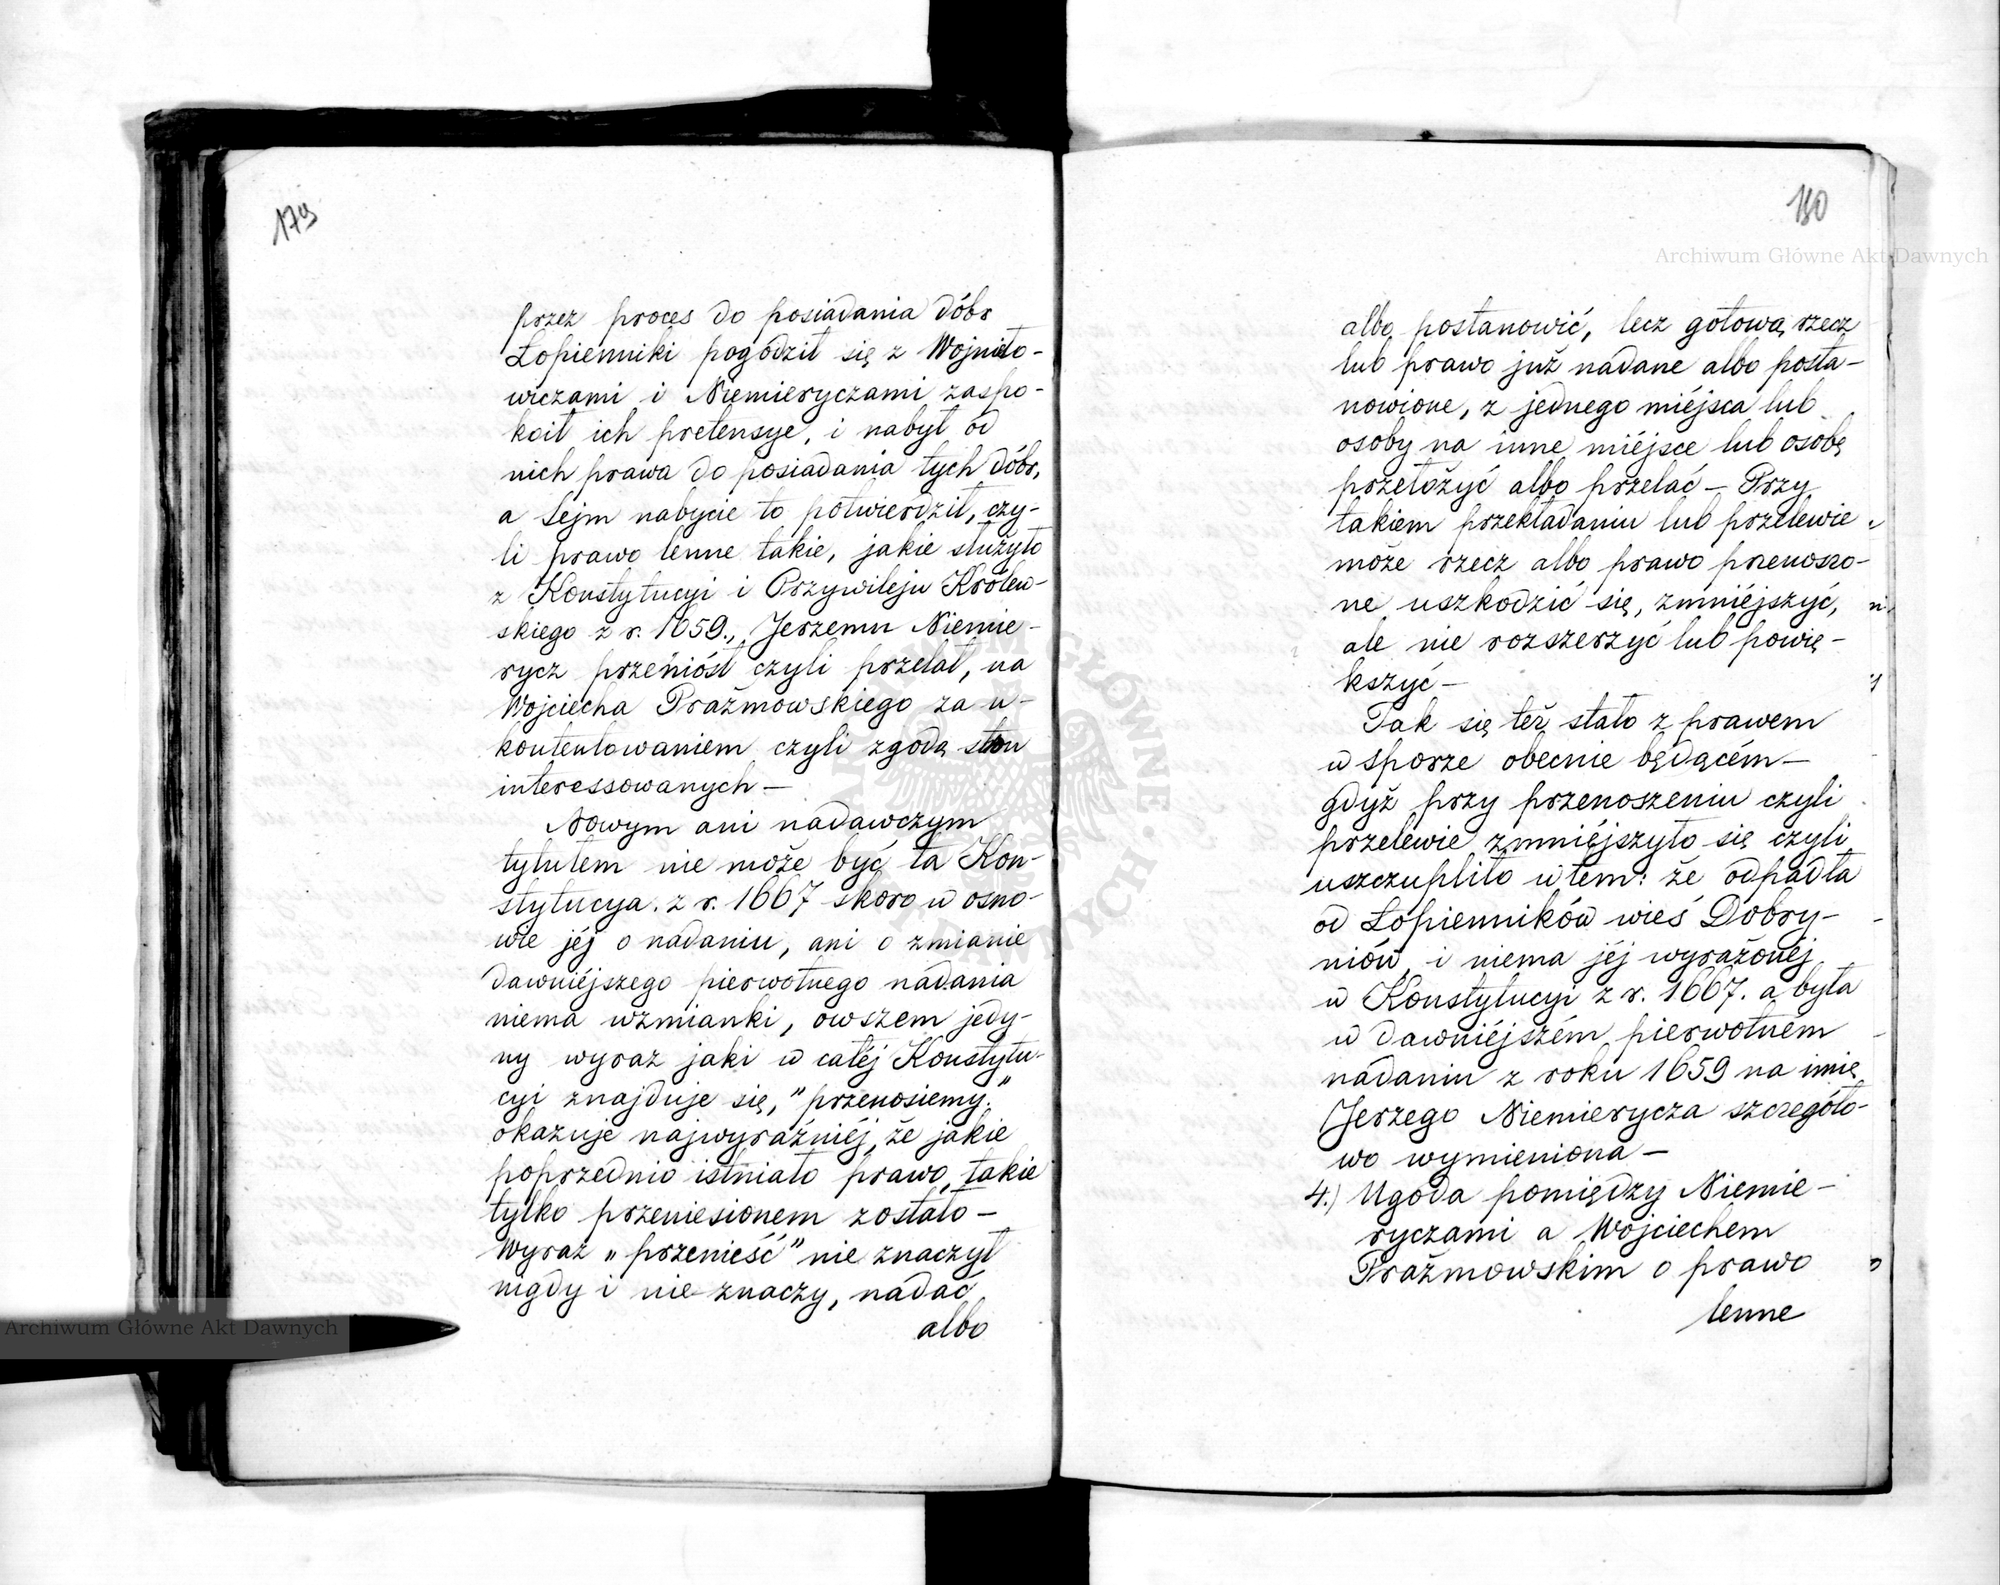 179
przez proces do posiadania dóbr
Łopienniki pogodził się z Wojniło-
wiczami i Niemieryczami zaspo-
koił ich pretensye, i nabył od
nich prawa do posiadania tych dóbr,
a Sejm nabycie to potwierdził, czy-
li prawo lenne takie, jakie służyło
z Konstytucyi i Przywileju Królew-
skiego z r. 1659., Jerzemu Niemie-
rycz przeniósł czyli przelał, na
Wojciecha Prażmowskiego za u-
kontentowaniem czyli zgodą stron
interessowanych —
Nowym ani nadawczym
tytułem nie może być ta Kon-
stytucya. z r. 1667 skoro w osno-
wie jéj o nadaniu, ani o zmianie
dawniéjszego pierwotnego nadania
niema wzmianki, owszem jedy-
ny wyraz jaki w całéj Konstytu-
cyi znajduje się, "przenosiemy."
okazuje najwyraźniéj, że jakie
poprzednio istniało prawo, takie
tylko przeniesionem zostało —
Wyraz „przenieść” nie znaczył
nigdy i nie znaczy, nadać
albo
180
albo postanowić, lecz gotową rzecz
lub prawo już nadane albo posta-
nowione, z jednego miéjsca lub
osoby na inne miéjsce lub osobę
przełożyć albo przelać — Przy
takiem przekładaniu lub przelewie
może rzecz albo prawo przenoszo-
ne uszkodzić się, zmniéjszyć,
ale nie rozszerzyć lub powię-
kszyć —
Tak się też stało z prawem
w sporze obecnie będącém —
gdyż przy przenoszeniu czyli
przelewie zmniéjszyło się czyli
uszczupliło w tem: że odpadła
od Łopienników wieś Dobry-
niów, i niema jéj wyrażonéj
w Konstytucyi z r. 1667. a była
w dawniéjszém pierwotném
nadaniu z roku 1659 na imię
Jerzego Niemierycza szczegóło-
wo wymieniona —
4.) Ugoda pomiędzy Niemie-
ryczami a Wojciechem
Prażmowskim o prawo
lenne
Archiwum Główne Akt Dawnych
Archiwum Główne Akt Dawnych